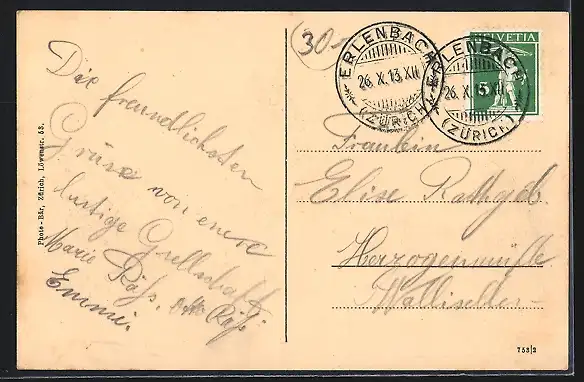 30-
ERLENBACH
26.X.13.XII
(ZÜRICH)
ERLENBACH
26.X.13.XII
(ZÜRICH)
HELVETIA
5
Die freundlichsten
Grüsse von einer
lustige Gesellschaft
Marie Räss. Otto Räss
Emmi.
Fräulein
Elise Rathgeb.
Herzogenmühle
Wallisellen
Photo-Bär, Zürich, Löwenstr. 53.
753/2